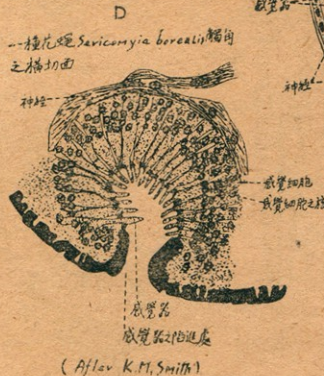 D
一種花蠅 Sericomyia borealis 觸角
之橫切面
神經
感覺器
神經
感覺細胞
感覺細胞之
感覺器
感覺器之陷進處
(After K.M. Smith)